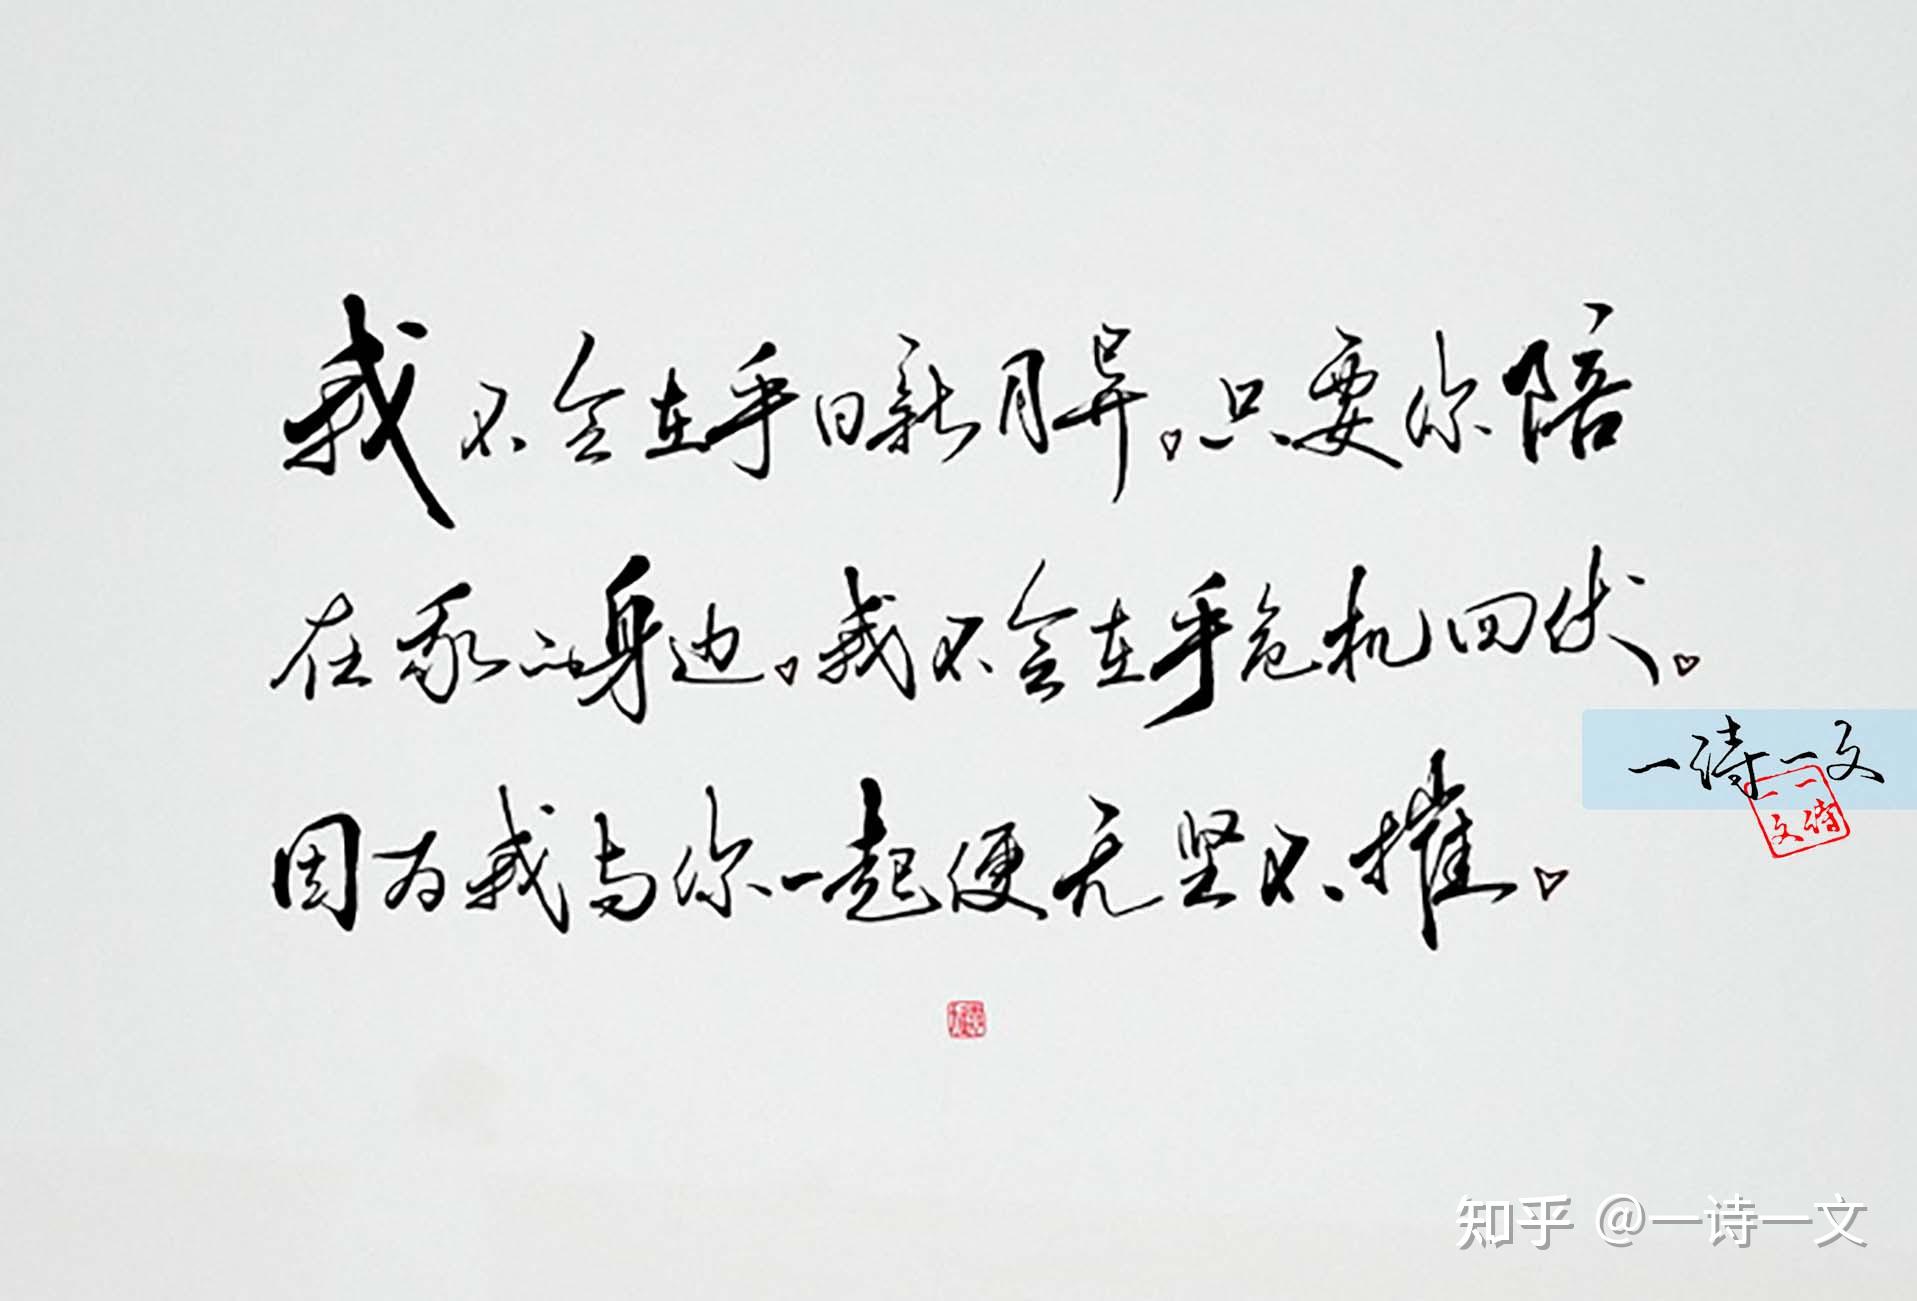 我不会在乎日新月异。只要你陪
在我的身边。我不会在乎危机四伏。
因为我与你一起便无坚不摧。
一诗一文
一诗一文
知乎 @一诗一文